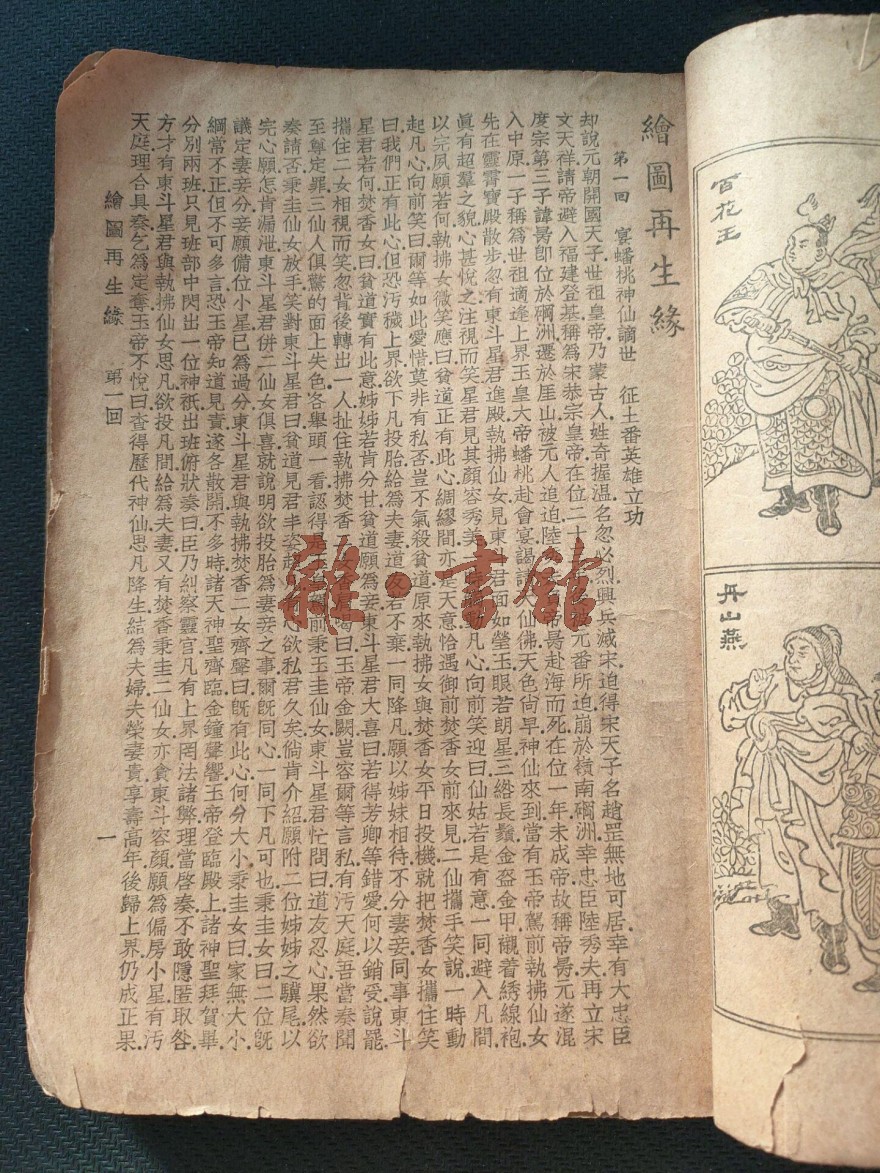 百花王
丹山燕
繪圖再生緣
第一回　宴蟠桃神仙謫世　征土番英雄立功
却說元朝開國天子世祖皇帝乃蒙古人姓奇握溫名忽必烈興兵滅宋迫得宋天子名趙罡無地可居幸有大忠臣
文天祥請帝避入福建登基稱爲宋恭宗皇帝在位二十 被元番所迫崩於嶺南碙洲幸忠臣陸秀夫再立宋
度宗第三子諱昺卽位於碙洲遷於厓山被元人追迫陸 帝昺赴海而死在位一年未成帝故稱帝昺元遂混
入中原一子稱爲世祖適逢上界玉皇大帝蟠桃赴會宴謁 大仙佛天色尙早神仙來到當有玉帝駕前執拂仙女
先在靈霄寶殿散步忽有東斗星君進殿執拂仙女見東斗 君面如瑩玉眼若朗星三綹長鬚金盔金甲襯着綉線袍
眞有超羣之貌心甚悅之注視而笑星君見其顏容秀美 凡心向前笑迎曰仙姑若是有意一同避入凡間
以完夙願若何執拂女微笑應曰貧道正有此心綢繆間亦是天意恰遇御前焚香女前來見二仙攜手笑說一時動
起凡心向前笑曰爾等如此愛惜莫非有私否豈不氣殺貧道原來執拂女與焚香女平日投機就把焚香女攜住笑
曰我們正有此心但恐汚穢上界欲下凡投胎給爲夫妻道友若不棄一同降凡願以姊妹相待不分妻妾同事東斗
星君若何焚香女曰貧道實有此意姊姊若肯分甘貧道願爲妾東斗星君大喜曰若得芳卿等錯愛何以銷受說罷
攜住二女相視而笑忽背後轉出一人扯住執拂焚香 喝曰玉帝金闕豈容爾等言私有汚天庭吾當奏聞
至尊定罪三仙人俱驚的面上失色各舉頭一看認得是 前秉玉圭仙女東斗星君忙問曰道友忍心果然欲
奏請否秉圭仙女放手笑對東斗星君曰貧道見君丰姿超 欲私君久矣倘肯介紹願附二位姊姊之驥尾以
完心願怎肯漏泄東斗星君併二仙女俱喜就說明欲投胎爲妻妾之事爾旣同心一同下凡可也秉圭女曰二位旣
議定妻妾分妾願備位小星已爲過分東斗星君與執拂焚香二女齊聲曰旣有此心何分大小秉圭女曰家無大小
綱常不正但不可多言恐玉帝知道見責遂各散開不多時諸天神聖齊臨金鐘聲響玉帝登臨殿上諸神聖拜賀畢
分別兩班只見班部中閃出一位神祇出班俯狀奏曰臣乃糾察靈官凡有上界罔法諸弊理當啓奏不敢隱匿取咎
方才有東斗星君與執拂仙女思凡欲投凡間給爲夫妻又有焚香秉圭二仙女亦貪東斗容顏願爲偏房小星有汚
天庭理合具奏乞爲定奪玉帝不悅曰查得歷代神仙思凡降生結爲夫婦夫榮妻貴享壽高年後歸上界仍成正果
繪圖再生緣　第一回
一
雜·書館